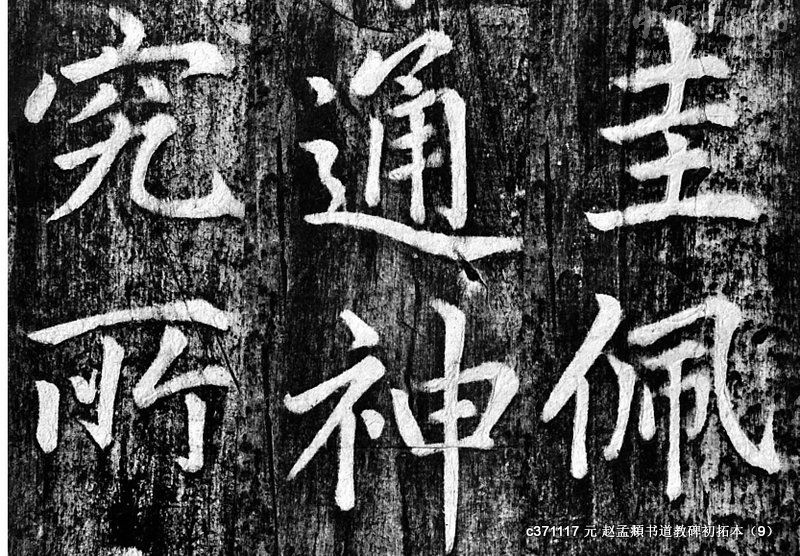 圭佩
通神
究所
c371117 元 赵孟頫书道教碑初拓本（9）